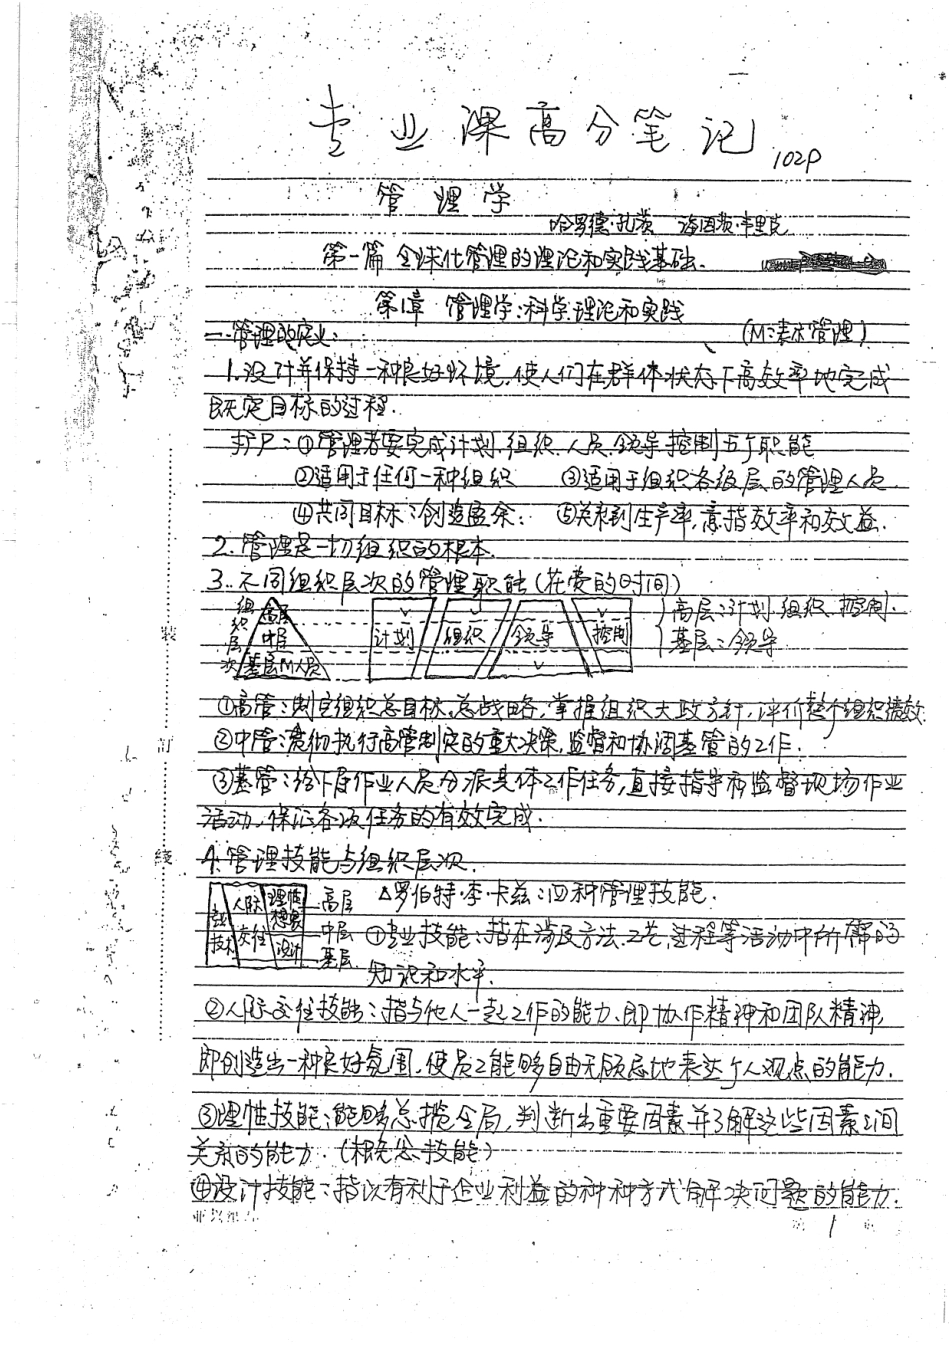 专业课高分笔记 102P
管理学
哈罗德·孔茨 海因茨·韦里克
第一篇 全球化管理的理论和实践基础.
第1章 管理学:科学、理论和实践
一.管理的定义: (M:表示管理)
1.设计并保持一种良好环境,使人们在群体状态下高效率地完成
既定目标的过程.
扩尸:①管理者要完成计划.组织.人员.领导.控制五个职能
②适用于任何一种组织 ③适用于组织各级层的管理人员
④共同目标:创造盈余. ⑤关系到生产率,意指效率和效益.
2.管理是一切组织的根本.
3.不同组织层次的管理职能(花费的时间)
组织层次 高层 中层 基层M人员 计划 组织 领导 控制 高层:计划.组织.控制. 基层:领导
①高管:制定组织总目标、总战略,掌握组织大政方针,评价整个组织绩效
②中管:贯彻执行高管制定的重大决策,监督和协调基管的工作.
③基管:给下属作业人员分派具体工作任务,直接指导和监督现场作业
活动,保证各项任务的有效完成.
4.管理技能与组织层次.
技术 人际交往 理性 设计 高层 中层 基层 △罗伯特·李·卡兹:四种管理技能.
①专业技能:指在涉及方法.工艺.过程等活动中所需的
知识和水平.
②人际交往技能:指与他人一起工作的能力.即协作精神和团队精神,
即创造出一种良好氛围,使员工能够自由无顾忌地表达个人观点的能力.
③理性技能:能够总揽全局,判断出重要因素并了解这些因素之间
关系的能力.(概念技能)
④设计技能:指以有利于企业利益的种种方式解决问题的能力.
装
订
线
1